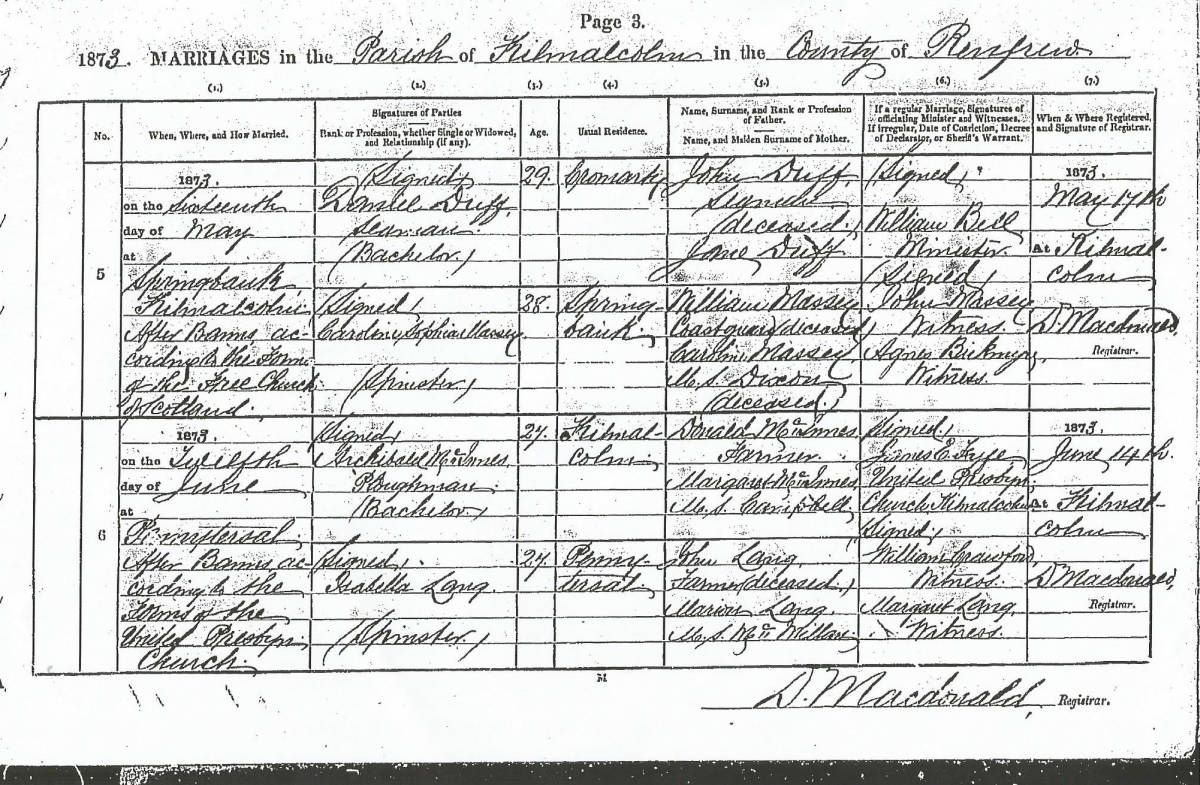 Page 3.
1873. MARRIAGES in the Parish of Kilmalcolm in the County of Renfrew
(1.) (2.) (3.) (4.) (5.) (6.) (7.)
No.
When, Where, and How Married.
Signatures of Parties
Rank or Profession, whether Single or Widowed,
and Relationship (if any).
Age.
Usual Residence.
Name, Surname, and Rank or Profession
of Father.
Name, and Maiden Surname of Mother.
If a regular Marriage, Signatures of
officiating Minister and Witnesses.
If irregular, Date of Conviction, Decree
of Declarator, or Sheriff's Warrant.
When & Where Registered,
and Signature of Registrar.
5
1873.
on the Sixteenth
day of May
at
Springbank
Kilmalcolm
After Banns, ac-
cording to the Forms
of the Free Church
of Scotland.
(Signed)
Daniel Duff,
Seaman
(Bachelor)
(Signed)
Caroline Sophia Massey
(Spinster)
29.
28.
Cromarty
Spring-
bank
John Duff,
Seaman
(deceased)
Jane Duff
William Massey
Coastguard (deceased)
Caroline Massey
M.S. Dixon
(deceased)
(Signed)
William Bell
Minister
(Signed)
John Massey
Witness.
Agnes Birkmyre,
Witness.
1873.
May 17th
At Kilmal-
colm
D. Macdonald,
Registrar.
6
1873.
on the Twelfth
day of June
at
Pennytersal
After Banns, ac-
cording to the
Forms of the
United Presbyn.
Church.
(Signed)
Archibald McInnes
Ploughman
(Bachelor)
(Signed)
Isabella Lang.
(Spinster)
27.
27.
Kilmal-
colm
Penny-
tersal
Donald McInnes
Farmer.
Margaret McInnes
M.S. Campbell
John Lang
Farmer (deceased)
Marion Lang.
M.S.
Signed)
James E. Fyfe
United Presbyn.
Church, Kilmalcolm
Signed)
William Crawford
Witness.
Margaret Lang,
Witness.
1873.
June 14th.
At Kilmal-
colm
D. Macdonald,
Registrar.
M
D. Macdonald, Registrar.